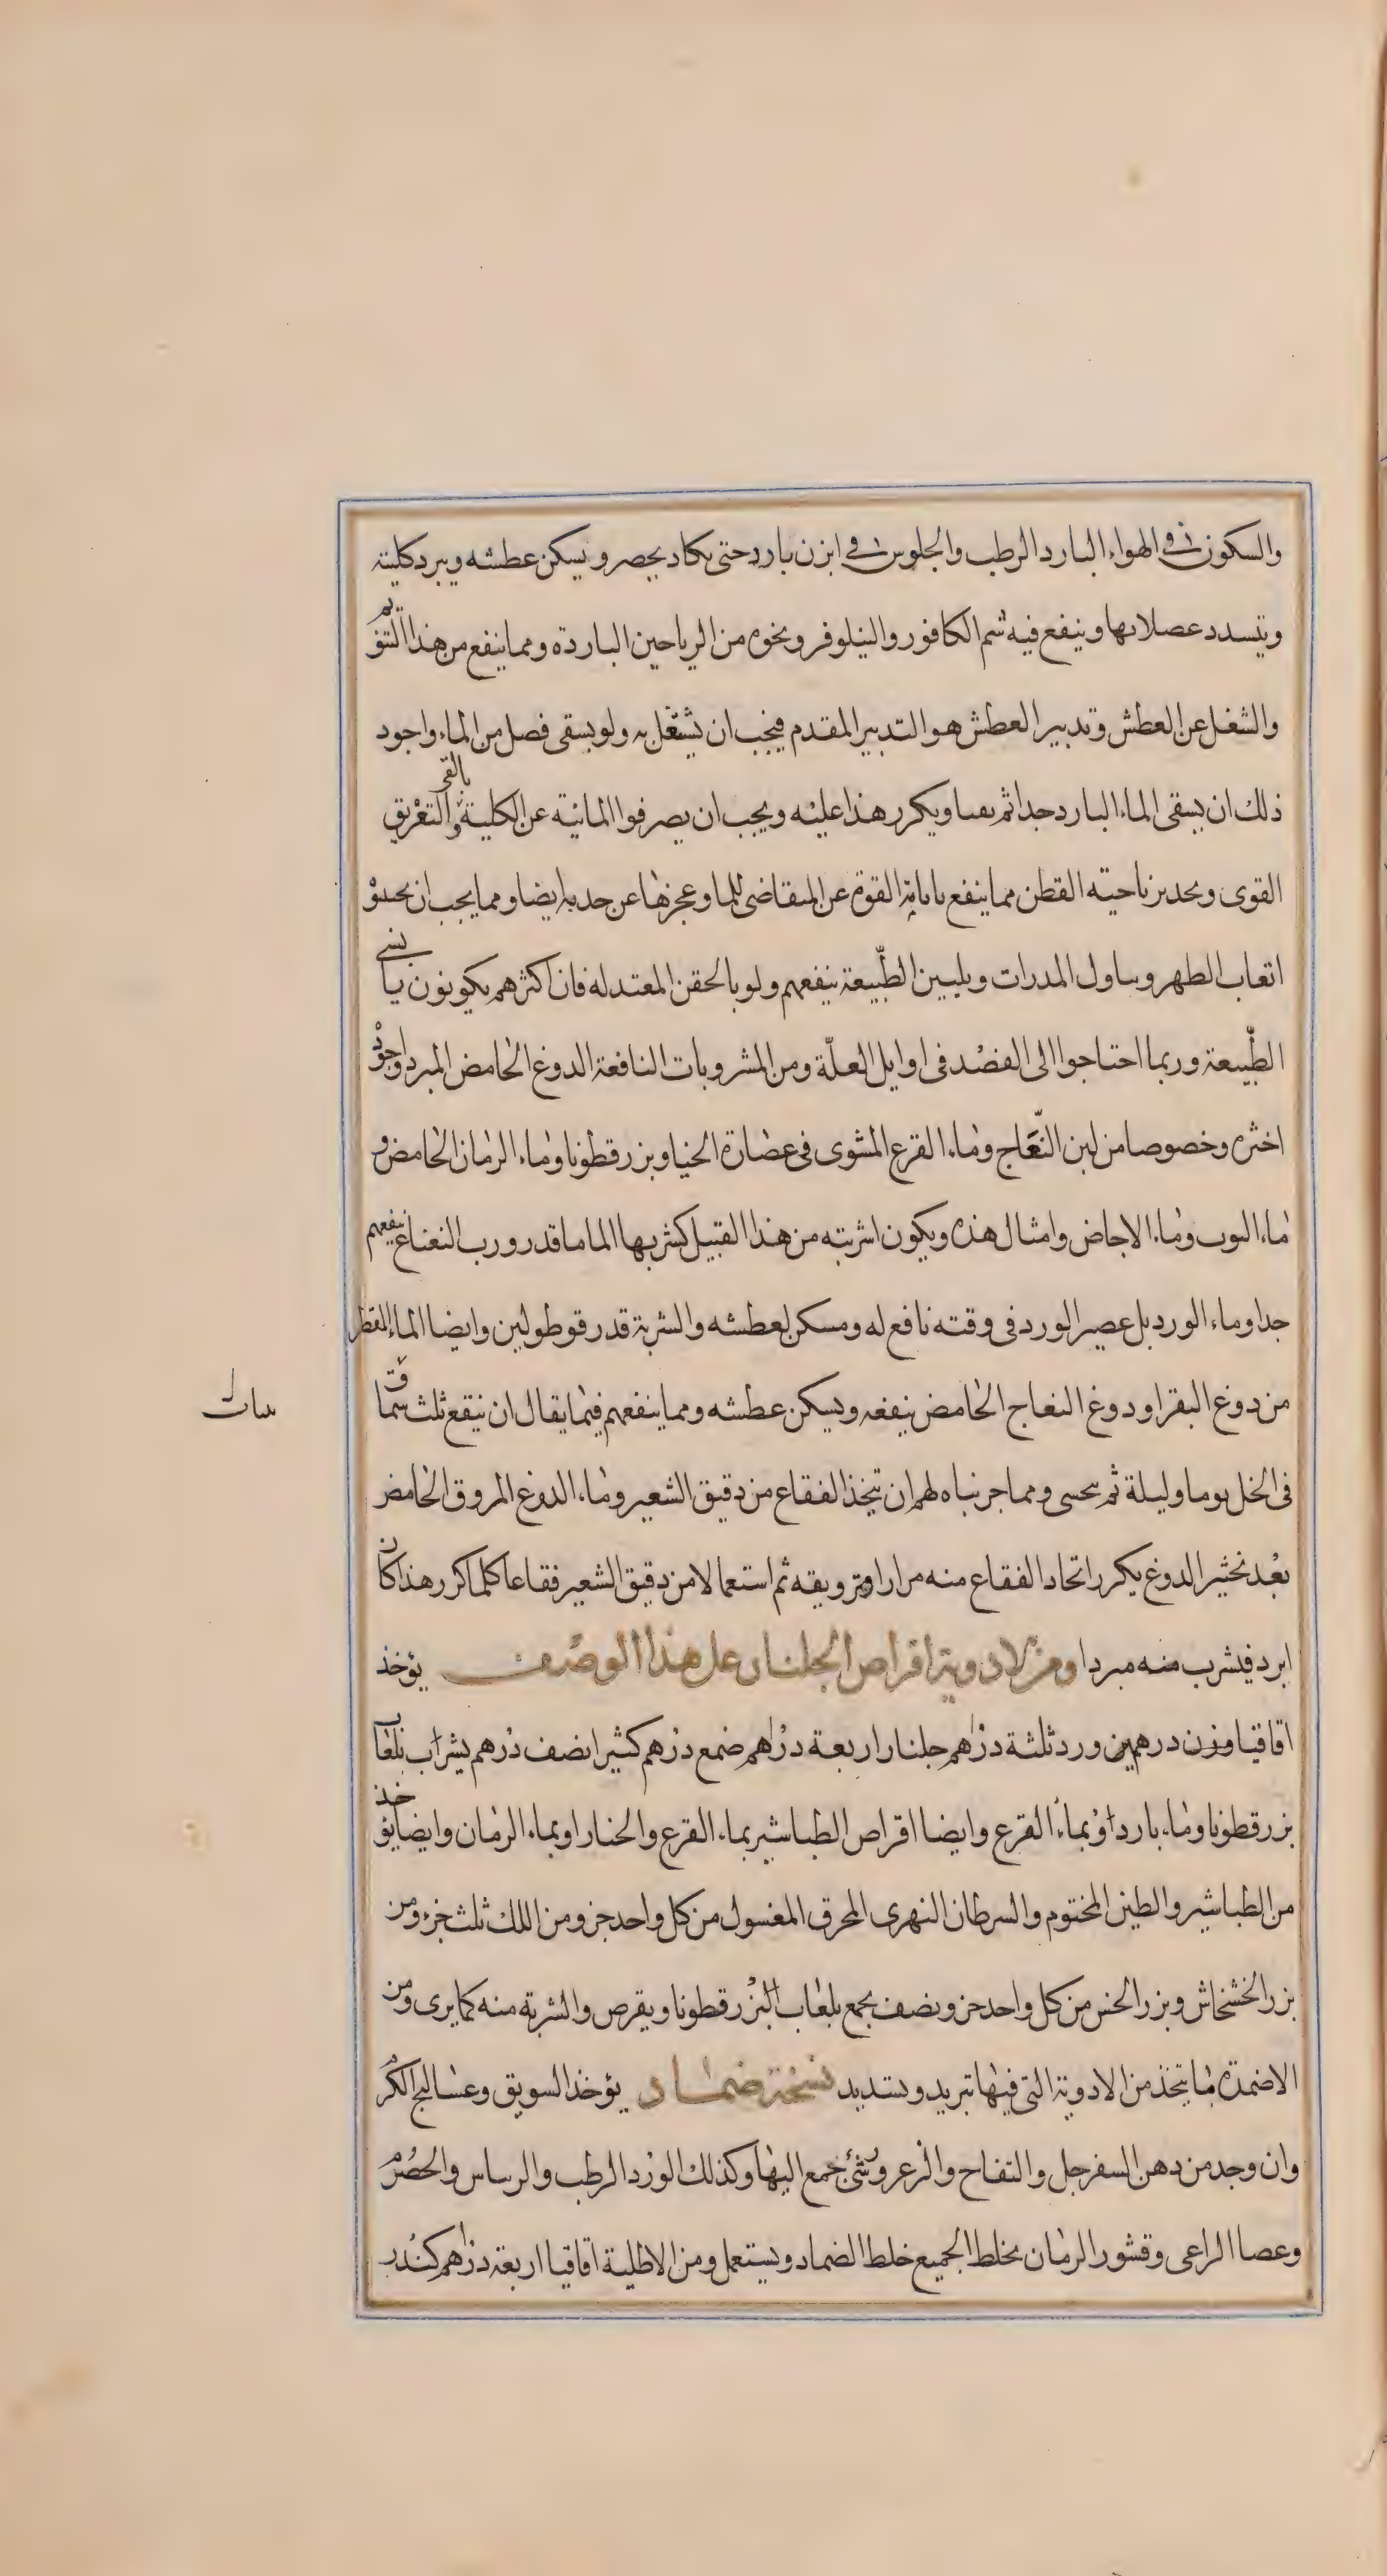 والسكون في الهواء البارد الرطب والجلوس في ابزن بارد حتى يكاد يخصر ويسكن عطشه ويبرد كليته
وتشدد عضلاتها وينفع فيه شم الكافور والنيلوفر ونحوه من الرياحين الباردة ومما ينفع من هذا التنويم
والشغل عن العطش وتدبير العطش هو التدبير المقدم فيجب ان يشتغل به ولو يسقى فصل من الماء واجود
ذلك ان يسقى الماء البارد جدا ثم يقيا ويكرر هذا عليه ويجب ان يصرفوا المائية عن الكلية بالقى والتعريق
القوى وتحدير ناحية القطن مما ينفع باباته القوة عن المتقاضى للما وعجزها عن جذبه ايضا ومما يجب ان يجتنبوا
اتعاب الظهر وتناول المدرات وتليين الطبيعة ينفعهم ولو بالحقن المعتدله فان اكثرهم يكونون يابسى
الطبيعة وربما احتاجوا الى الفصد فى اوايل العلة ومن المشروبات النافعة الدوغ الحامض المبرد واجوده
اخثره وخصوصا من لبن النعاج وماء القرع المشوى فى عصارة الخيار وبزرقطونا وماء الرمان الحامض و
ماء التوت وماء الاجاص وامثال هذه ويكون اشربته من هذا القبيل كشربها الما ما قدر ورب النعناع ينفعهم
جدا وماء الورد بل عصير الورد فى وقته نافع له ومسكن لعطشه والشربة قدر قوطولين وايضا الماء المقطر
من دوغ البقر او دوغ النعاج الحامض ينفعه ويسكن عطشه ومما ينفعهم فيما يقال ان ينقع ثلث
فى الخل يوما وليلة ثم يحسى ومما جربناه لهم ان يتخذ الفقاع من دقيق الشعير وماء الدوغ المروق الحامض
بعد تخثير الدوغ يكرر اتخاد الفقاع منه مرارا وترويقه ثم استعمالا من دقيق الشعير فقاعا كلما كرر هذا كان
ابرد فيشرب منه مبردا ومن الادوية اقراص الجلنار على هذا الوصف يؤخذ
اقاقيا وزن درهمين ورد ثلثة دراهم جلنار اربعة دراهم صمغ درهم كثيرا نصف درهم يشرب بلعاب
بزرقطونا وماء بارد او بماء القرع وايضا اقراص الطباشير بماء القرع والخيار او بماء الرمان وايضا يؤخذ
من الطباشير والطين المختوم والسرطان النهرى المحرق المغسول من كل واحد جزو ومن اللك ثلث جزء ومن
بزر الخشخاش وبزر الخس من كل واحد جزو ونصف يجمع بلعاب البزرقطونا ويقرص والشربة منه كما يرى ومن
الاضمدة ما يتخذ من الادوية التى فيها تبريد وتشديد نسخة ضماد يؤخذ السويق وعساليج الكرم
وان وجد من دهن السفرجل والتفاح والزعرور شئ جمع اليها وكذلك الورد الرطب والرساس والحصرم
وعصا الراعى وقشور الرمان يخلط الجميع خلط الضماد ويستعمل ومن الاطلية اقاقيا اربعة دراهم كندر